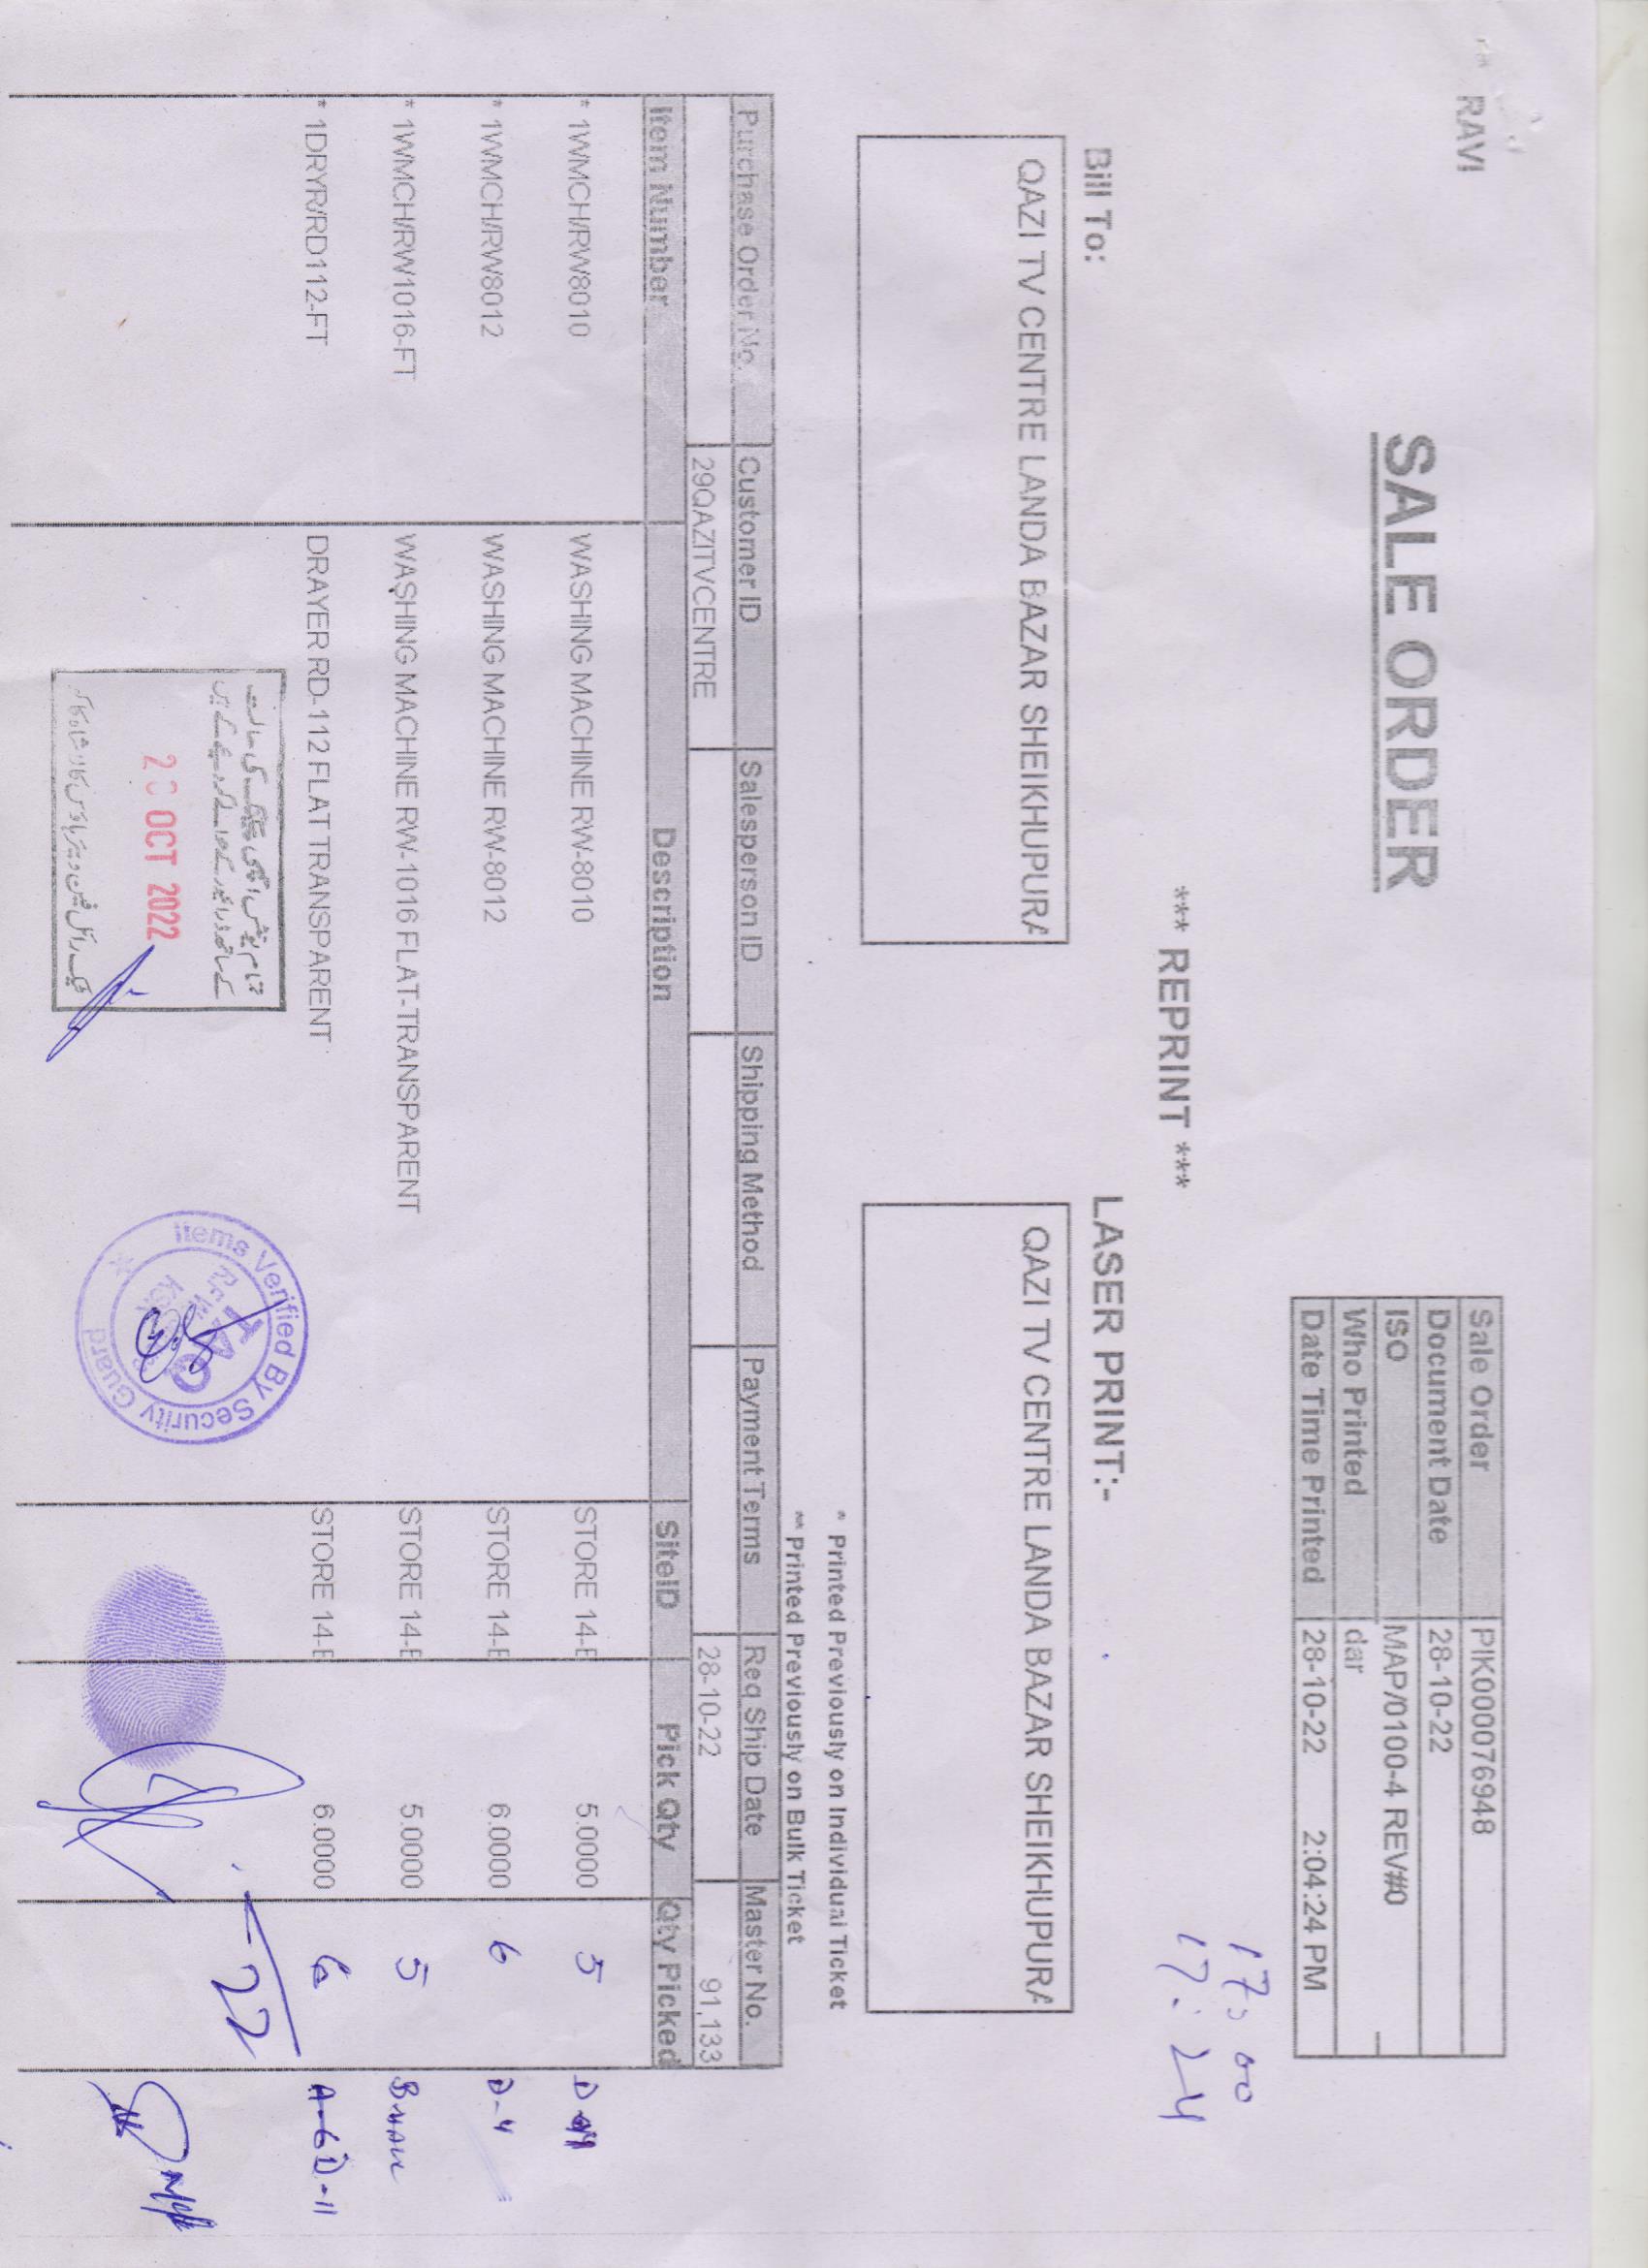 RAVI
SALE ORDER
Sale Order PIK000076948
Document Date 28-10-22
ISO MAP/0100-4 REV#0
Who Printed dar
Date Time Printed 28-10-22 2:04:24 PM
17:00
17:24
*** REPRINT ***
Bill To:
LASER PRINT:-
QAZI TV CENTRE LANDA BAZAR SHEIKHUPURA
QAZI TV CENTRE LANDA BAZAR SHEIKHUPURA
* Printed Previously on Individual Ticket
** Printed Previously on Bulk Ticket
Purchase Order No. Customer ID Salesperson ID Shipping Method Payment Terms Req Ship Date Master No.
29QAZITVCENTRE 28-10-22 91,133
Item Number Description SiteID Pick Qty Qty Picked
* 1WMCH/RW8010 WASHING MACHINE RW-8010 STORE 14-E 5.0000 5 D-
* 1WMCH/RW8012 WASHING MACHINE RW-8012 STORE 14-E 6.0000 6 D-4
* 1WMCH/RW1016-FT WASHING MACHINE RW-1016 FLAT-TRANSPARENT STORE 14-E 5.0000 5
* 1DRYR/RD112-FT DRAYER RD-112 FLAT TRANSPARENT STORE 14-E 6.0000 6 A-6 D-11
22
تمام یونٹس اچھی پیکنگ کی حالت
کے ساتھ ڈرائیور کے حوالے کر دیئے گئے ہیں
OCT 2022
ٹیک رائل فین ویئر ہاؤس کالا شاہ کاکو
Items Verified By Security Guard